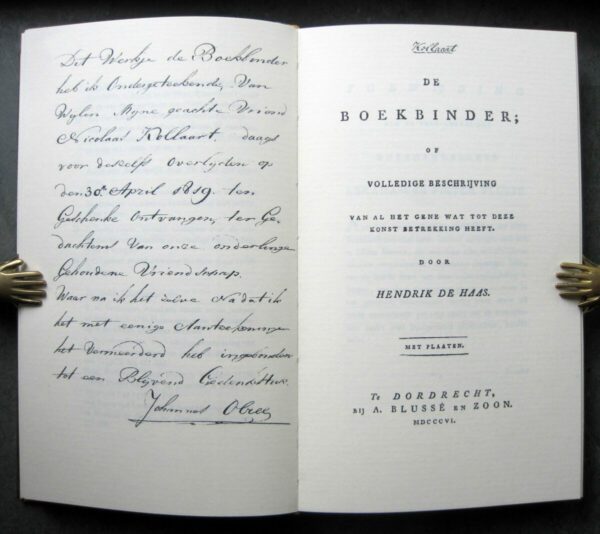 Dit Werkje de Boekbinder
heb ik Ondergeteekende, Van
Wylen Myne geachte Vriend
Nicolaas Kollaart. daags
voor deszelfs Overlyden op
den 30e April 1819. ten
Geschenke Ontvangen, ter Ge-
dachtenis Van onze onderlinge
Gehoudene Vriendschap.
Waar na ik het zelve Nadat ik
het met eenige Aanteekeninge
het Vermeerderd heb inbinden
tot een Blyvend Gedenk
Johannes
Kollaart
DE
BOEKBINDER;
OF
VOLLEDIGE BESCHRIJVING
VAN AL HET GENE WAT TOT DEZE
KONST BETREKKING HEEFT.
DOOR
HENDRIK DE HAAS.
MET PLAATEN.
Te DORDRECHT,
BIJ A. BLUSSÉ EN ZOON.
MDCCCVI.